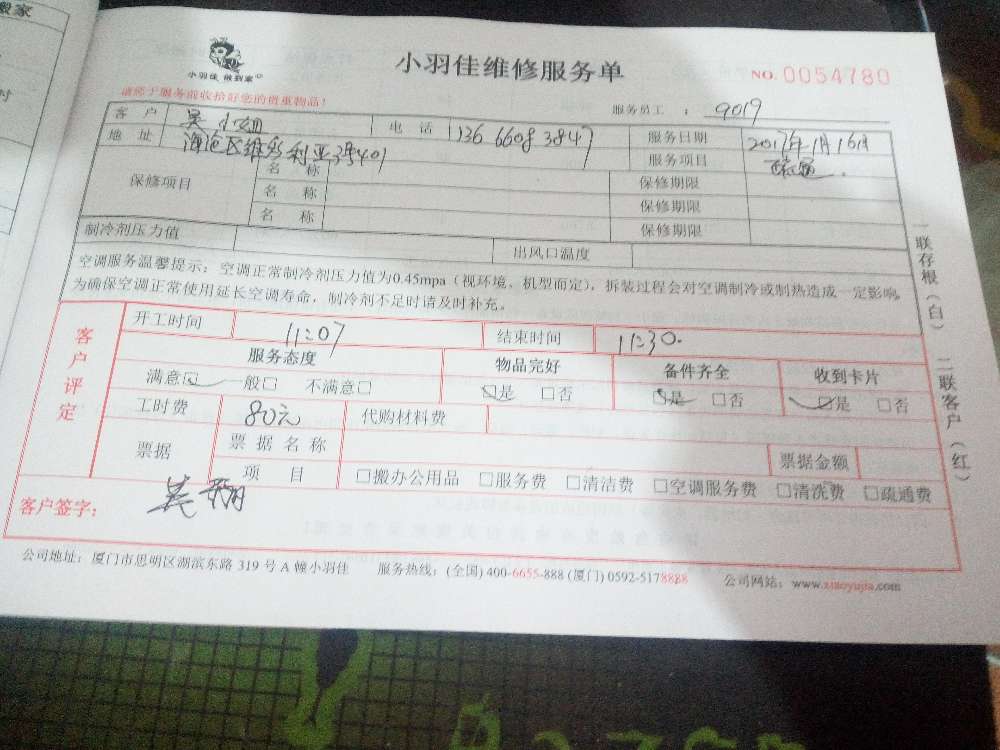 搬家
小羽佳 做到家
小羽佳维修服务单
NO. 0054780
请您于服务前收拾好您的贵重物品！
服务员工 ： 9019
客 户 吴小姐 电 话 136 6608 3847 服务日期 2017年1月16日
地 址 海沧区维多利亚3号401 服务项目
保修项目 名 称 保修期限
名 称 保修期限
名 称 保修期限
制冷剂压力值 出风口温度
空调服务温馨提示：空调正常制冷剂压力值为0.45mpa（视环境、机型而定），拆装过程会对空调制冷或制热造成一定影响，
为确保空调正常使用延长空调寿命，制冷剂不足时请及时补充。
客户评定
开工时间 11:07 结束时间 11:30.
服务态度 物品完好 备件齐全 收到卡片
满意☑ 一般□ 不满意□ ☑是 □否 ☑是 □否 ☑是 □否
工时费 80元 代购材料费
票据 票据名称 票据金额
项 目 □搬办公用品 □服务费 □清洁费 □空调服务费 □清洗费 □疏通费
客户签字：
公司地址：厦门市思明区湖滨东路 319 号 A 幢小羽佳 服务热线：(全国) 400-6655-888 (厦门) 0592-5178888 公司网站：www.xiaoyujia.com
一联存根（白） 二联客户（红）